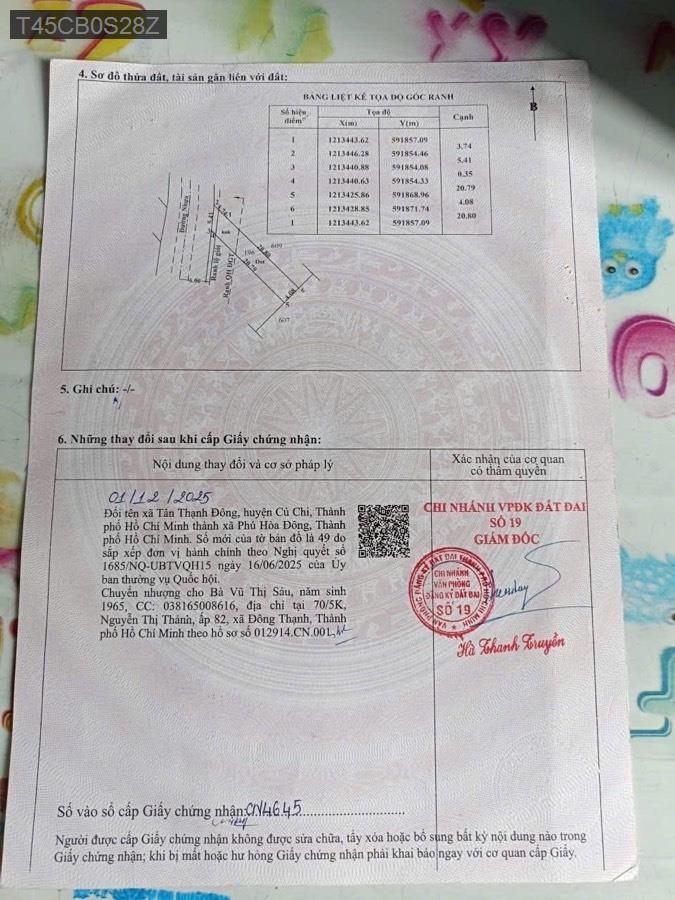 T45CB0S28Z
4. Sơ đồ thửa đất, tài sản gắn liền với đất:
BẢNG LIỆT KÊ TỌA ĐỘ GÓC RANH
Số hiệu điểm Tọa độ Cạnh
X(m) Y(m)
1 1213443.62 591857.09
3.74
2 1213446.28 591854.46
5.41
3 1213440.88 591854.08
0.35
4 1213440.63 591854.33
20.79
5 1213425.86 591868.96
4.08
6 1213428.85 591871.74
20.80
1 1213443.62 591857.09
B
Đường Nhựa
5.41
3.74
609
196
20.80
20.79
Ranh lộ giới
Ranh QH ĐGT
6.00
4.08
6
5
607
5. Ghi chú: -/-
6. Những thay đổi sau khi cấp Giấy chứng nhận:
Nội dung thay đổi và cơ sở pháp lý
Xác nhận của cơ quan
có thẩm quyền
01/12/2025
Đổi tên xã Tân Thạnh Đông, huyện Củ Chi, Thành
phố Hồ Chí Minh thành xã Phú Hòa Đông, Thành
phố Hồ Chí Minh. Số mới của tờ bản đồ là 49 do
sắp xếp đơn vị hành chính theo Nghị quyết số
1685/NQ-UBTVQH15 ngày 16/06/2025 của Ủy
ban thường vụ Quốc hội.
Chuyển nhượng cho Bà Vũ Thị Sáu, năm sinh
1965, CC: 038165008616, địa chỉ tại 70/5K,
Nguyễn Thị Thảnh, ấp 82, xã Đông Thạnh, Thành
phố Hồ Chí Minh theo hồ sơ số 012914.CN.001.
CHI NHÁNH VPĐK ĐẤT ĐAI
SỐ 19
GIÁM ĐỐC
VĂN PHÒNG ĐĂNG KÝ ĐẤT ĐAI THÀNH PHỐ HỒ CHÍ MINH
CHI NHÁNH
VĂN PHÒNG
ĐĂNG KÝ ĐẤT ĐAI
SỐ 19
Hà Thanh Truyền
Số vào sổ cấp Giấy chứng nhận: CN4645
Người được cấp Giấy chứng nhận không được sửa chữa, tẩy xóa hoặc bổ sung bất kỳ nội dung nào trong
Giấy chứng nhận; khi bị mất hoặc hư hỏng Giấy chứng nhận phải khai báo ngay với cơ quan cấp Giấy.